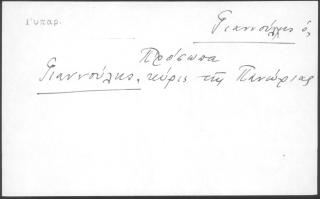 Γύπαρ.
Γιαννούλης ὁ,
Πρόσωπα
Γιαννούλης, κύρις τῆς Πανώριας